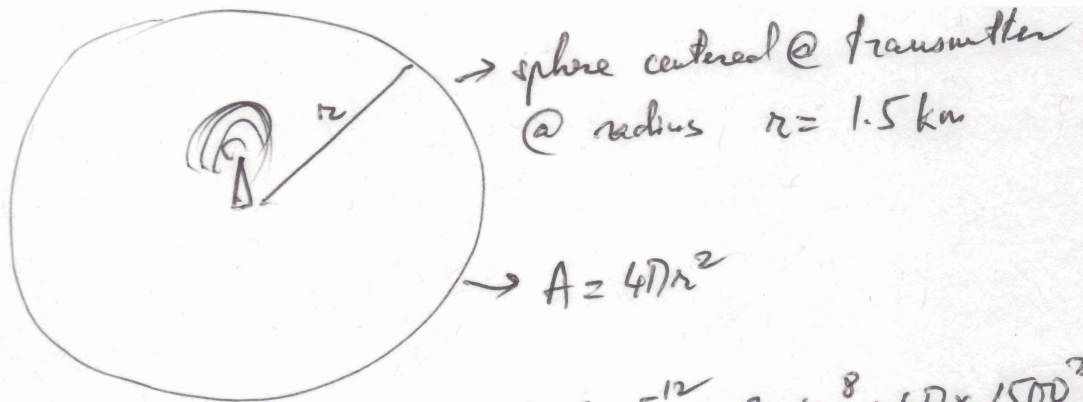 r
→ sphere centered @ transmitter
@ radius r = 1.5 km
→ A = 4πr²